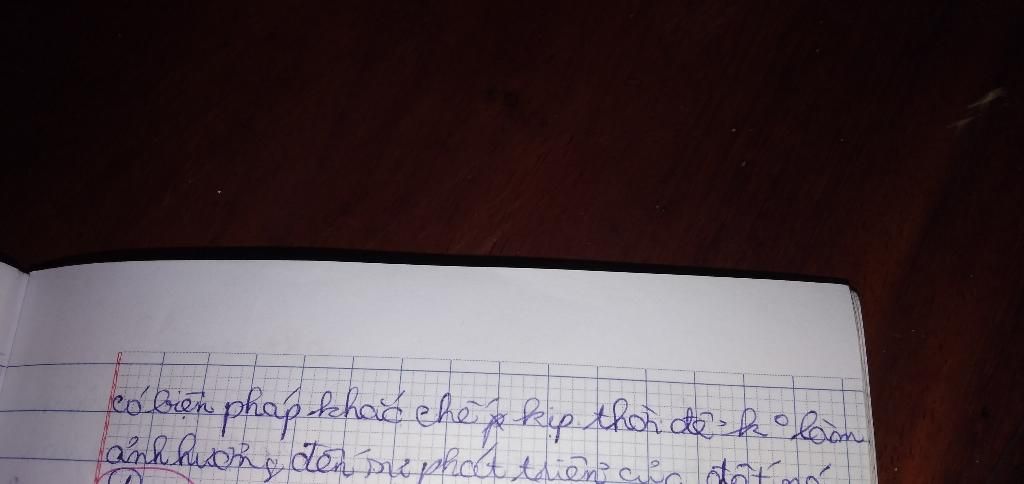 có biện pháp khắc chế kịp thời để k° làm
ảnh hưởng đến sự phát triển của đất nó